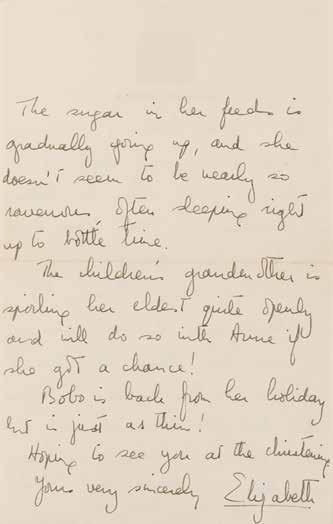 The sugar in her feeds is
gradually going up, and she
doesn't seem to be nearly so
ravenous, often sleeping right
up to bottle time.
The children's grandmother is
spoiling her eldest quite openly
and will do so with Anne if
she got a chance!
Bobo is back from her holiday
but is just as thin!
Hoping to see you at the christening.
Yours very sincerely
Elizabeth